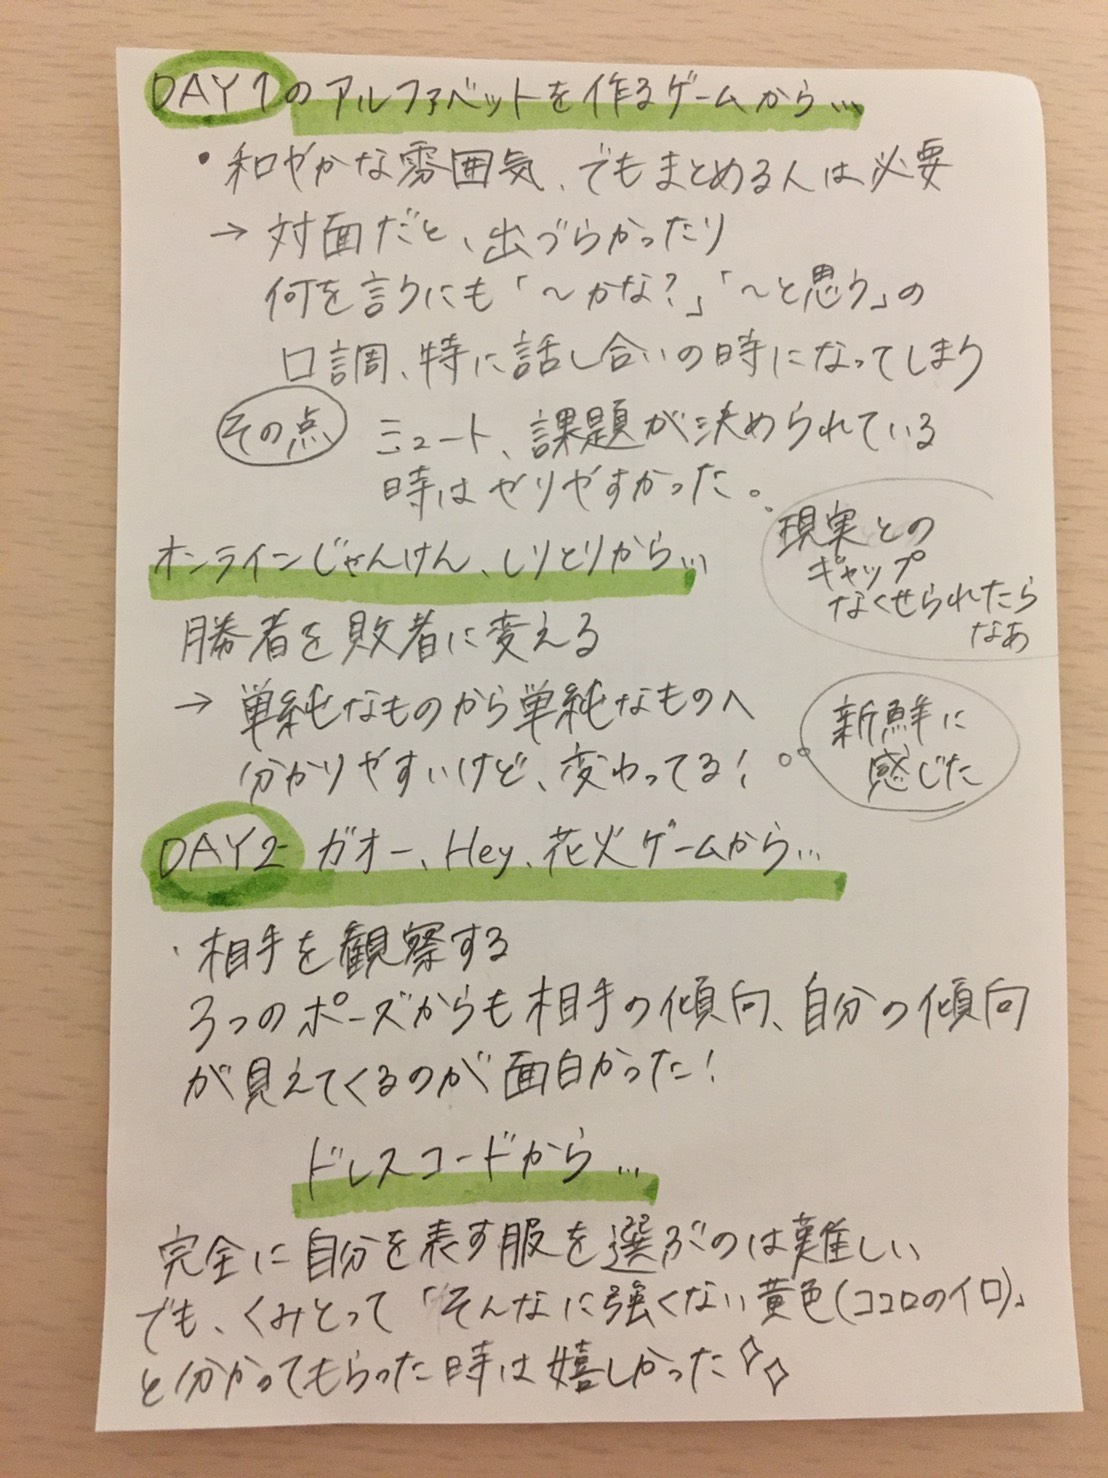 DAY1のアルファベットを作るゲームから…
・和やかな雰囲気、でもまとめる人は必要
→ 対面だと、出づらかったり
何を言うにも「〜かな？」「〜と思う」の
口調、特に話し合いの時になってしまう
その点 ミュート、課題が決められている
時はやりやすかった。
現実との
ギャップ
なくせられたら
なあ
オンラインじゃんけん、しりとりから…
勝者を敗者に変える
→ 単純なものから単純なものへ
分かりやすいけど、変わってる！
新鮮に
感じた
DAY2 ガオー、Hey、花火ゲームから…
・相手を観察する
3つのポーズからも相手の傾向、自分の傾向
が見えてくるのが面白かった！
ドレスコードから…
完全に自分を表す服を選ぶのは難しい
でも、くみとって「そんなに強くない黄色(ココロのイロ)」
と分かってもらった時は嬉しかった